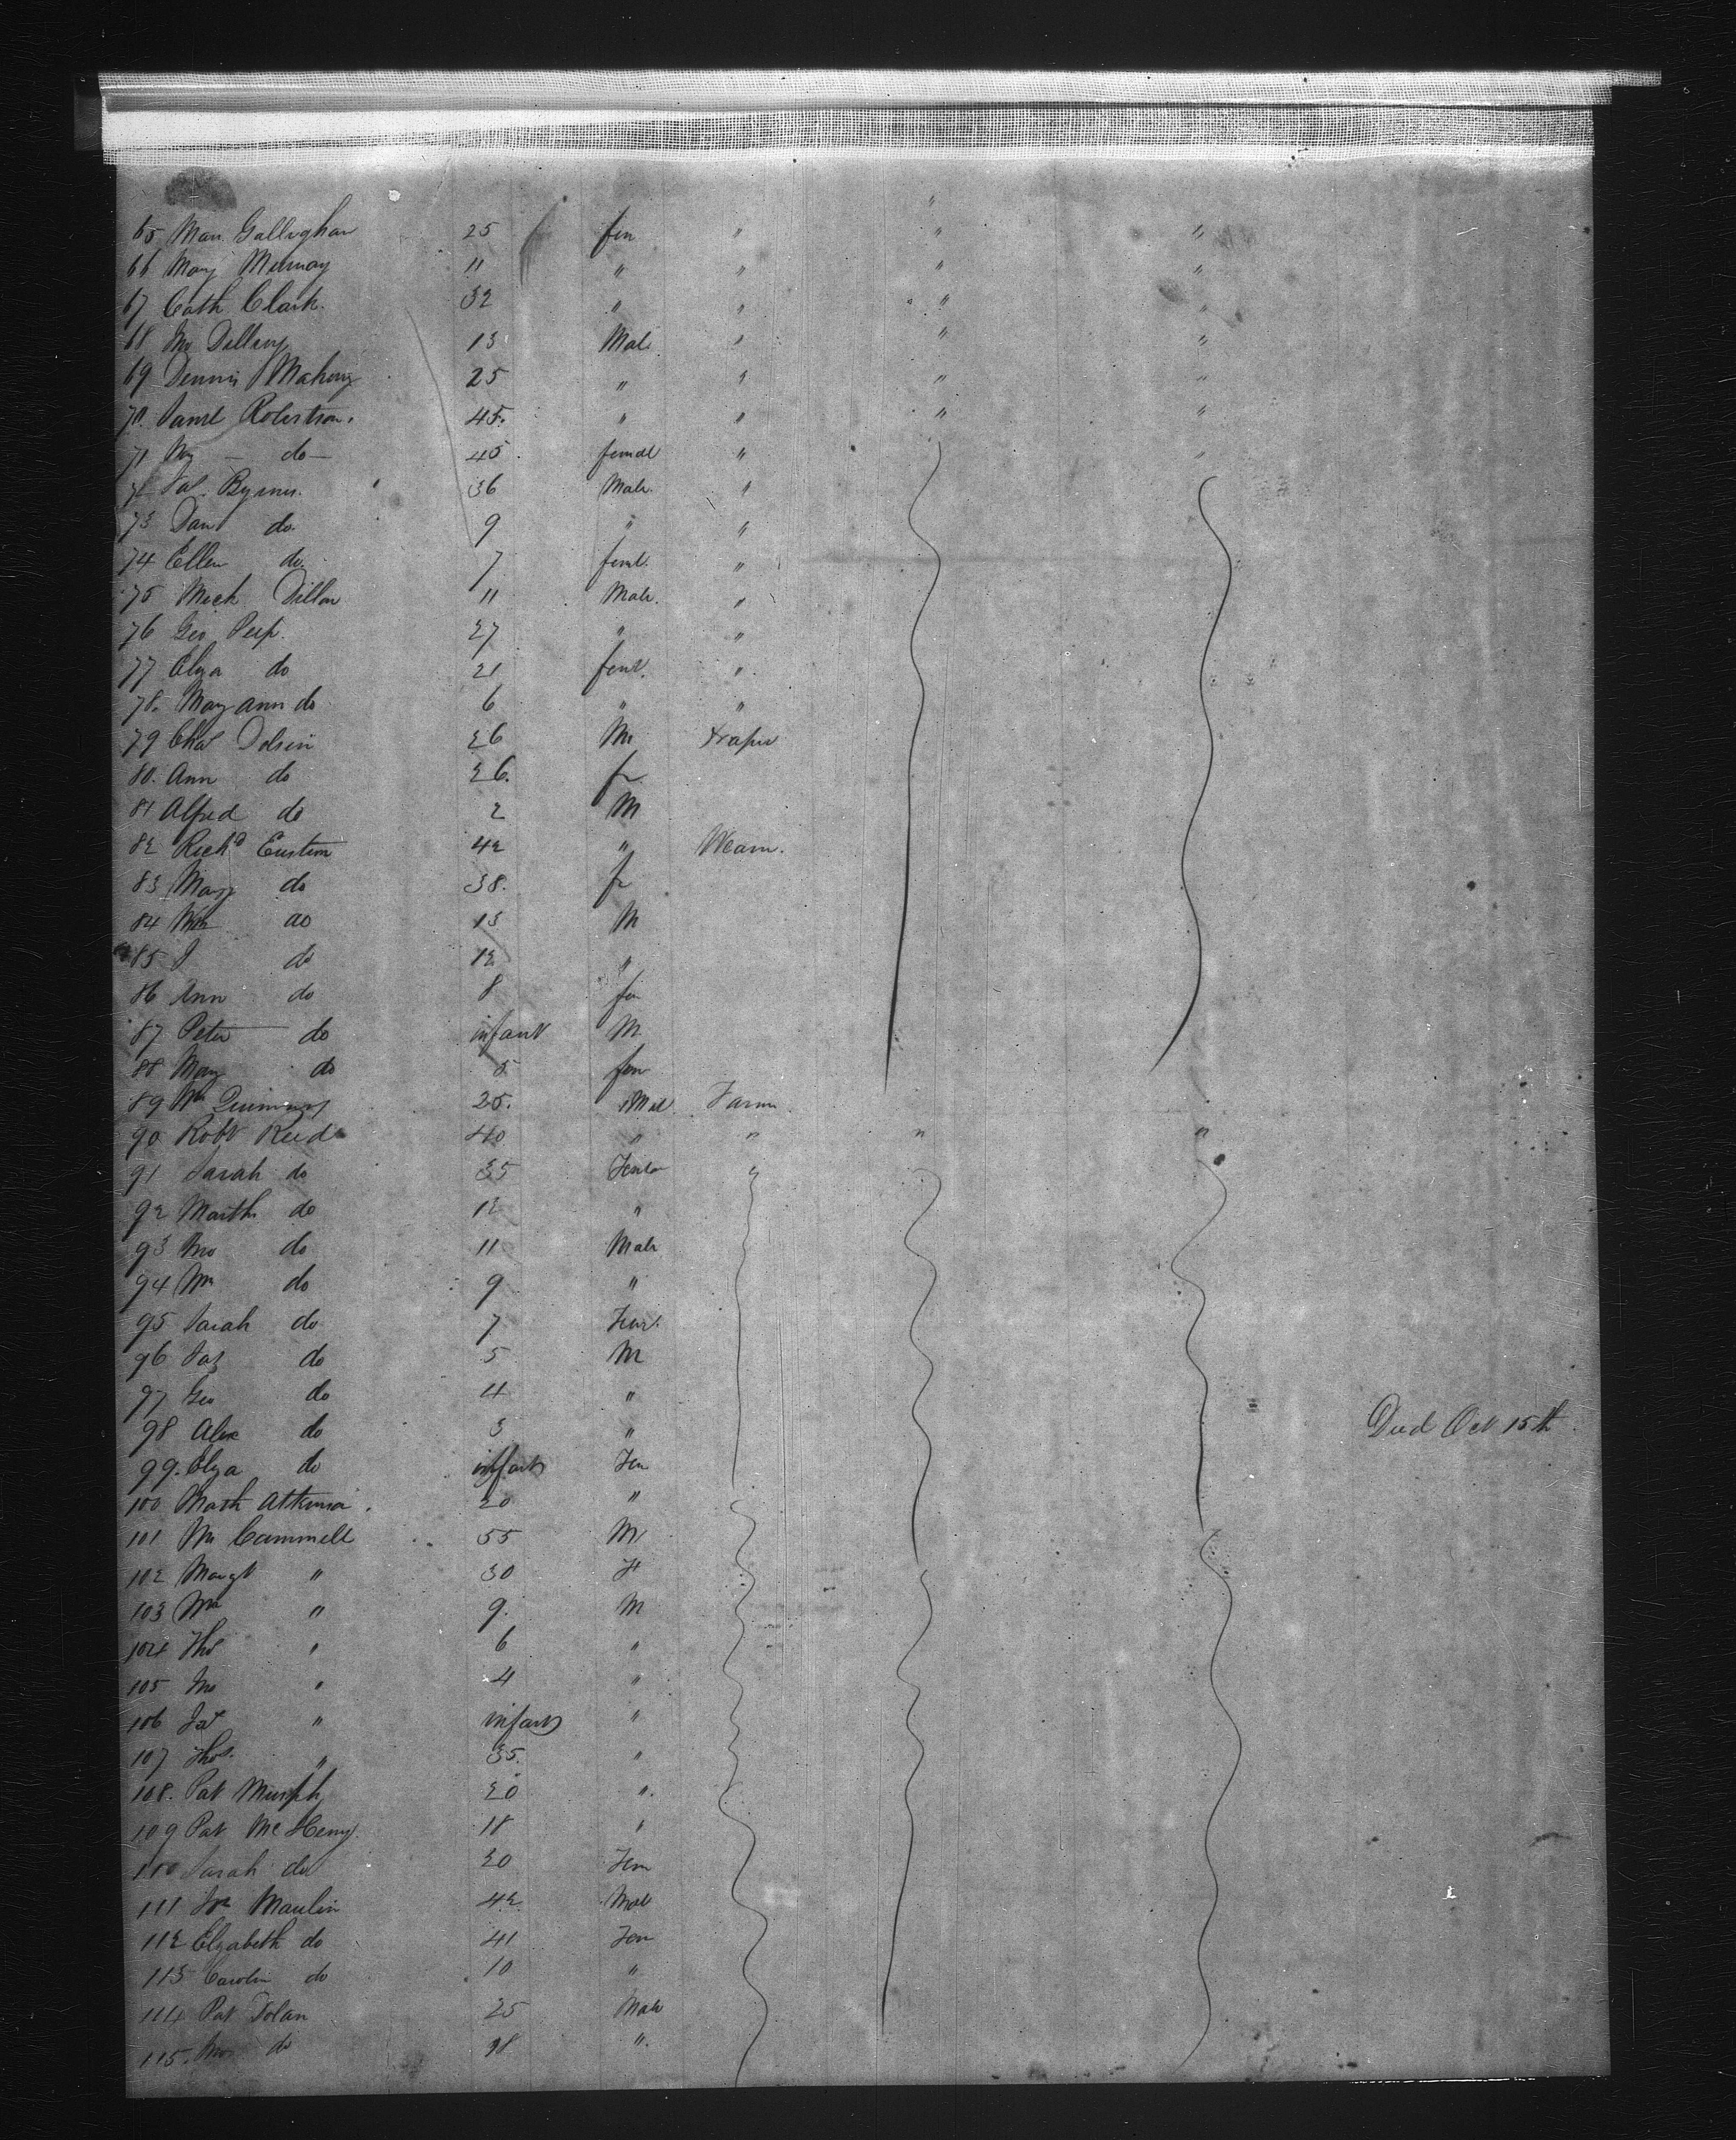 65 Mar. Gallaghan 25 fem " " "
66 Mary 11 " " " "
67 Cath Clark. 32 " " " "
68 Jno Dillany 13 Male " " "
69 Dennis Mahony 25 " " " "
70. Saml Robertson. 45. " " " "
71 My — do — 45 femal "
72 Jas. Byrnes. 36 Male. "
73 Dan do. 9 " "
74 Ellen do. 7 feml. "
75 Mick Dillon 11 Male. "
76 Geo Peep. 27 " "
77 Elza do 21 feml. "
78. Mary ann do 6 " "
79 Chas Dolsein 26 M
80. Ann do 26. fe.
81 Alfred do 2 M
82 Richd Eustim 42 " Weavr.
83 Mary do 38. fe
84 Wm do 13 M
85 J do 12 "
86 Ann do 8 fem
87 Peter do infant M
88 Mary do 5 fem
89 Wm 25. Mal Farm
90 Robt Reed 40 " " " "
91 Sarah do 35 Female "
92 Marth do 12 "
93 Jno do 11 Male
94 Wm do 9 "
95 Sarah do 7 Fem.
96 Jas do 5 M
97 Geo do 4 "
98 Alex do 3 " Died Oct 15th
99. Elza do infant Fem
100 Mark Atkinson. 20 "
101 Wm Cammell 55 M
102 Margt " 30 F
103 Wm " 9. M
104 Thos " 6 "
105 Jno " 4 "
106 Jas " infant "
107 Thos. " 35. "
108. Pat Murph 20 ".
109 Pat McHenry. 18 "
110 Sarah do 20 Fem
111 Jno Maulin 42 Male
112 Elzabeth do 41 Fem
113 Carolin do 10 "
114 Pat Dolan 25 Male
115. Jno do 18 ".